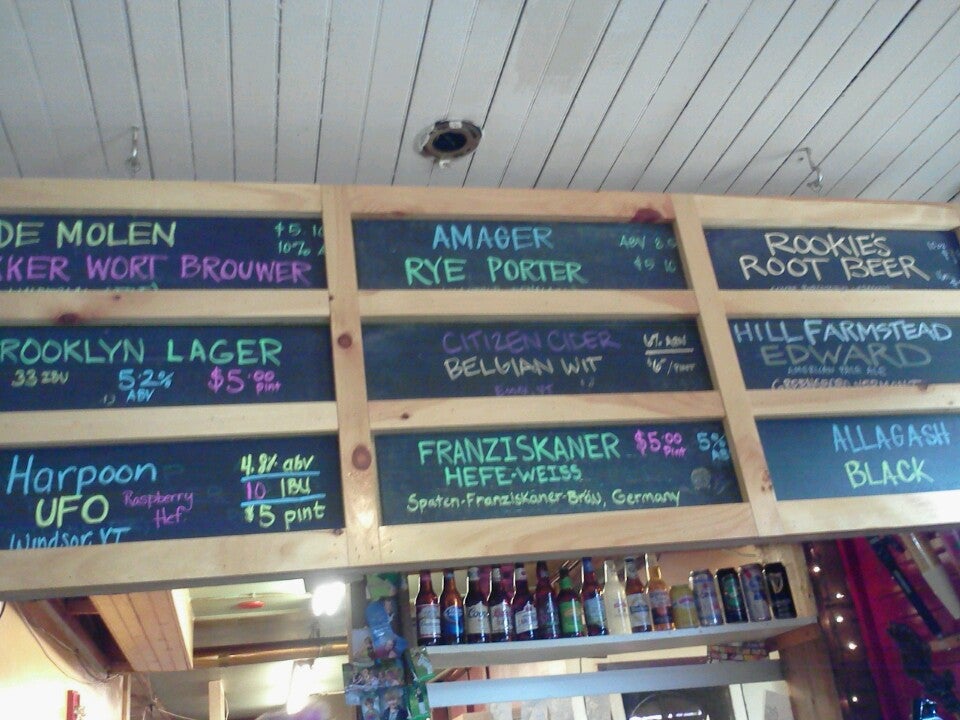 DE MOLEN $5
10%
KKER WORT BROUWER
AMAGER ABV
RYE PORTER $5
ROOKIE'S
ROOT BEER
ROOKLYN LAGER
33 IBU 5.2% $5.00
ABV pint
CITIZEN CIDER 6% ABV
BELGIAN WIT $6/PINT
HILL FARMSTEAD
EDWARD
AMERICAN PALE ALE
Harpoon 4.8% abv
UFO Raspberry 10 IBU
Hef. $5 pint
Windsor, VT
FRANZISKANER $5.00 5%
HEFE-WEISS Pint AB
Spaten-Franziskaner-Bräu, Germany
ALLAGASH
BLACK